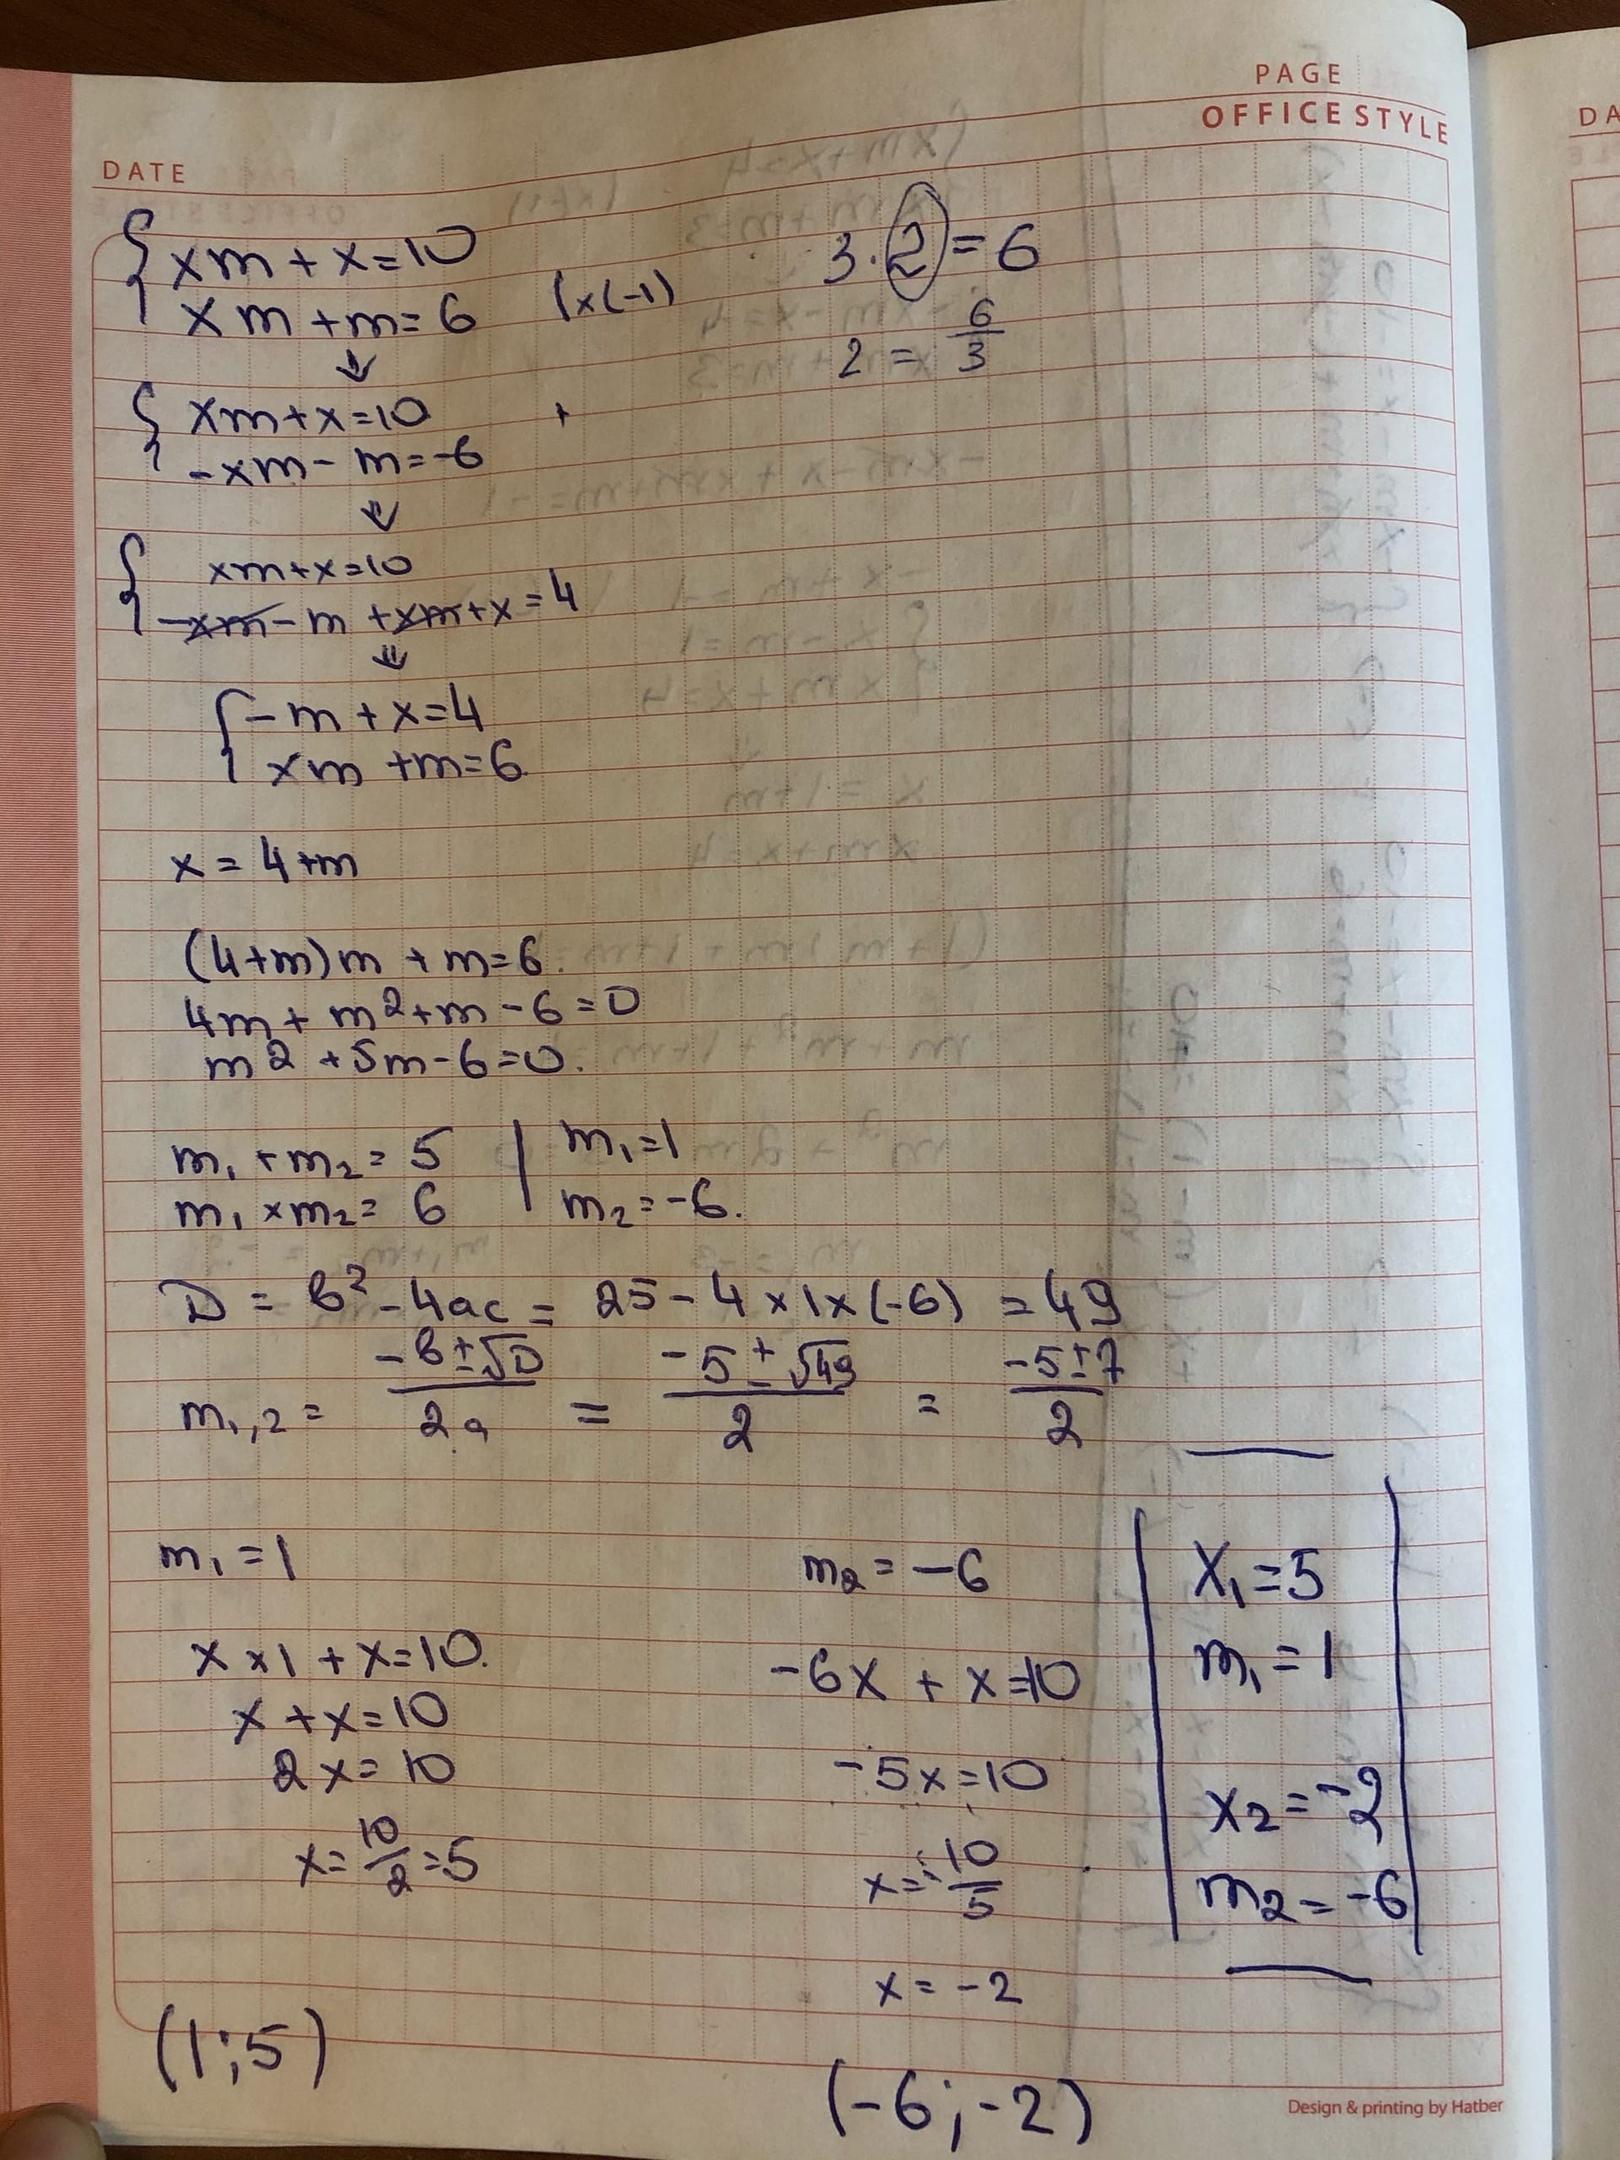 PAGE
OFFICE STYLE
DATE
DA
{ xm + x = 10
xm + m = 6 | x(-1)
3 · 2 = 6
2 = 6/3
⇓
{ xm + x = 10 +
-xm - m = -6
⇓
{ xm + x = 10
-xm - m + xm + x = 4
⇓
{ -m + x = 4
xm + m = 6
x = 4 + m
(4+m)m + m = 6.
4m + m² + m - 6 = 0
m² + 5m - 6 = 0.
m₁ + m₂ = 5 | m₁ = 1
m₁ × m₂ = 6 | m₂ = -6.
D = b² - 4ac = 25 - 4 × 1 × (-6) = 49
m₁,₂ = (-b ± √D)/2a = (-5 ± √49)/2 = (-5 ± 7)/2
m₁ = 1
x × 1 + x = 10.
x + x = 10
2x = 10
x = 10/2 = 5
(1; 5)
m₂ = -6
-6x + x = 10
-5x = 10
x = -10/5
x = -2
(-6; -2)
x₁ = 5
m₁ = 1
x₂ = -2
m₂ = -6
Design & printing by Hatber